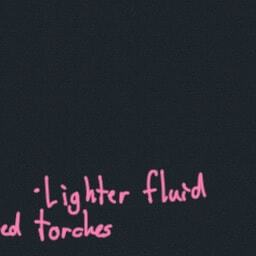 ·Lighter fluid
ed torches